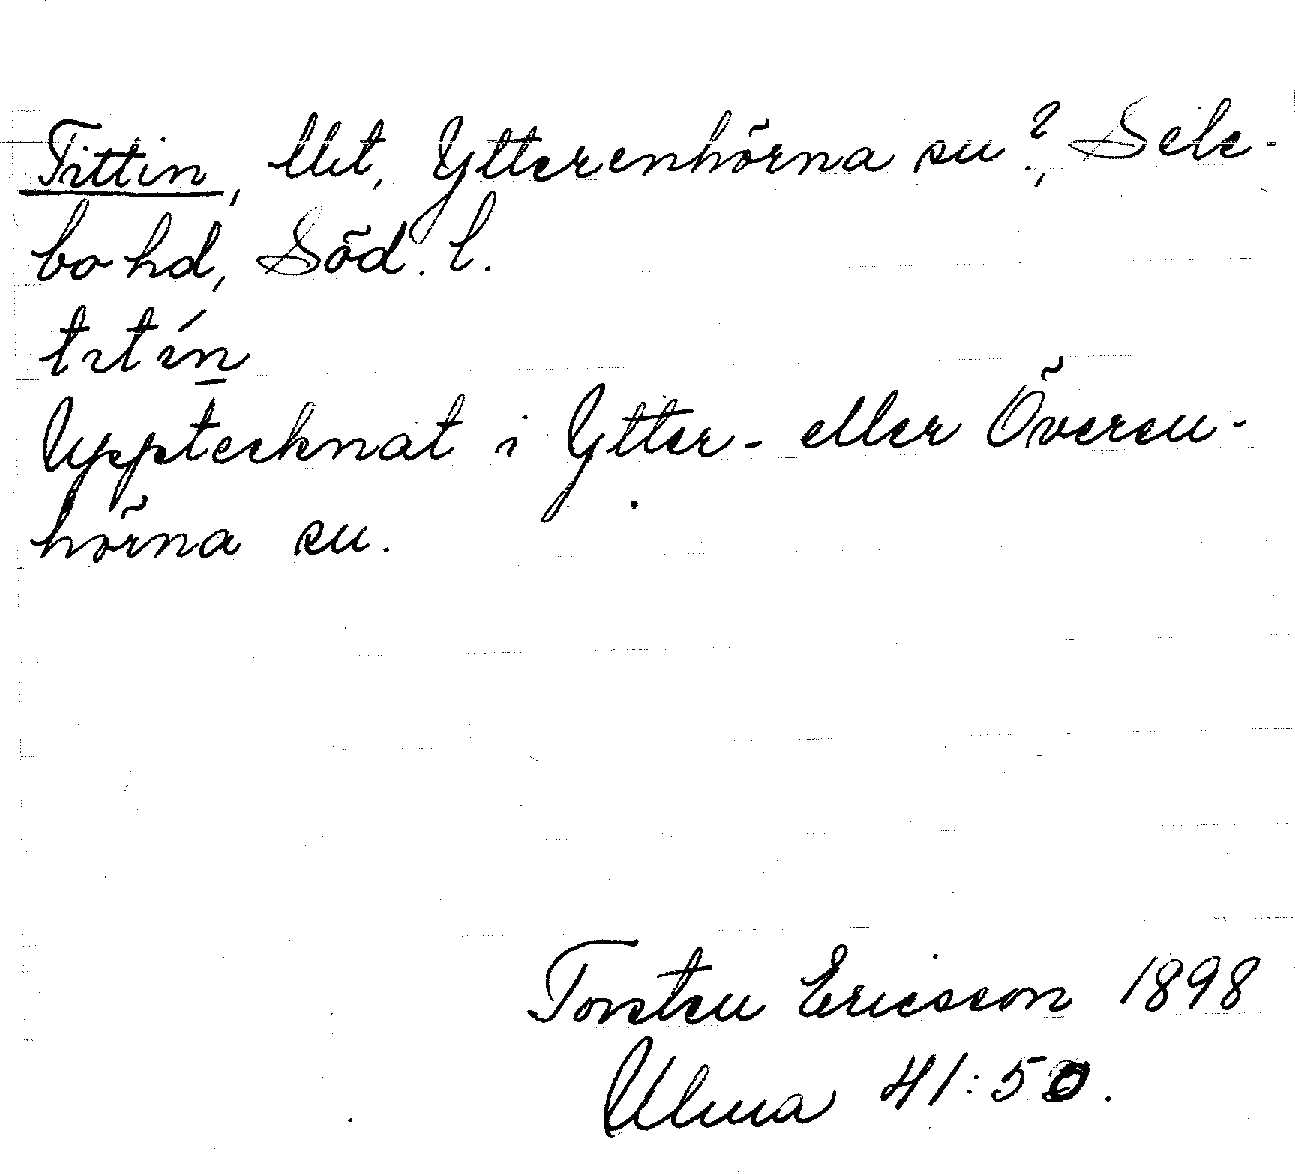 Tittin, Ut, Ytterenhörna sn?, Sele-
bo hd, Söd. l.
titín
Upptecknat i Ytter- eller Överen-
hörna sn.
Torsten Ericsson 1898
Ulma 41:50.